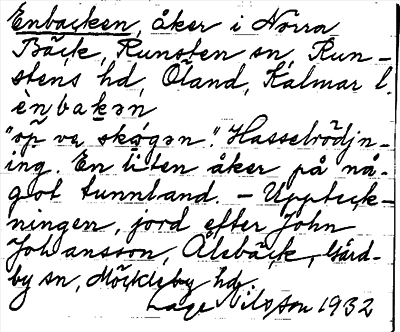 Enbacken, åker i Norra
Bäck, Runsten sn, Run-
stens hd, Öland, Kalmar l.
ènbakən
"öp va skógən." Hasselrödjn-
ing. En liten åker på nå-
got tunnland. – Uppteck-
ningen, jord efter John
Johansson, Ålebäck, Gård-
by sn, Möckleby hd.
Lage Nilsson 1932